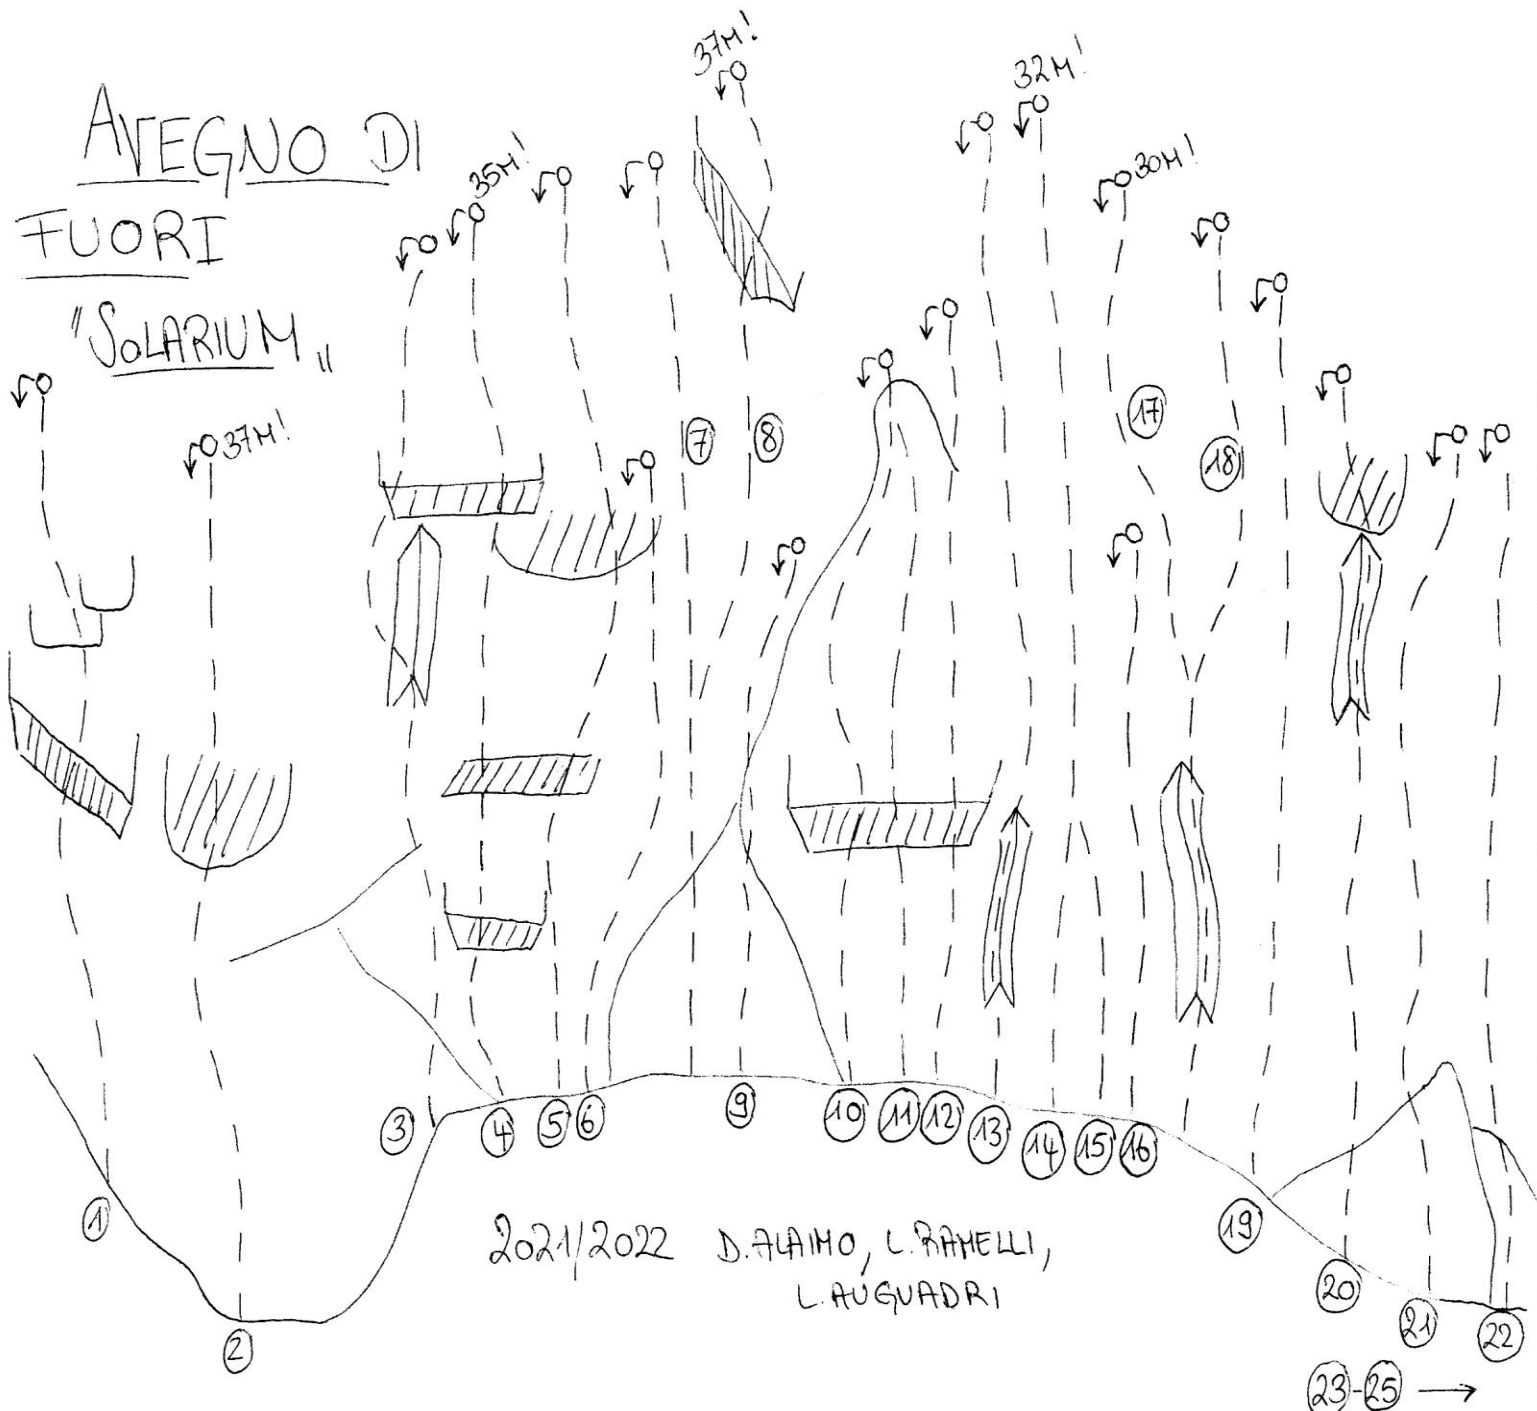 AVEGNO DI
FUORI
"SOLARIUM„
37M!
32M!
35M!
30M!
37M!
7
8
17
18
1
2
3
4
5
6
9
10
11
12
13
14
15
16
19
20
21
22
23-25 →
2021/2022 D.ALAIMO, L.RAMELLI,
L.AUGUADRI